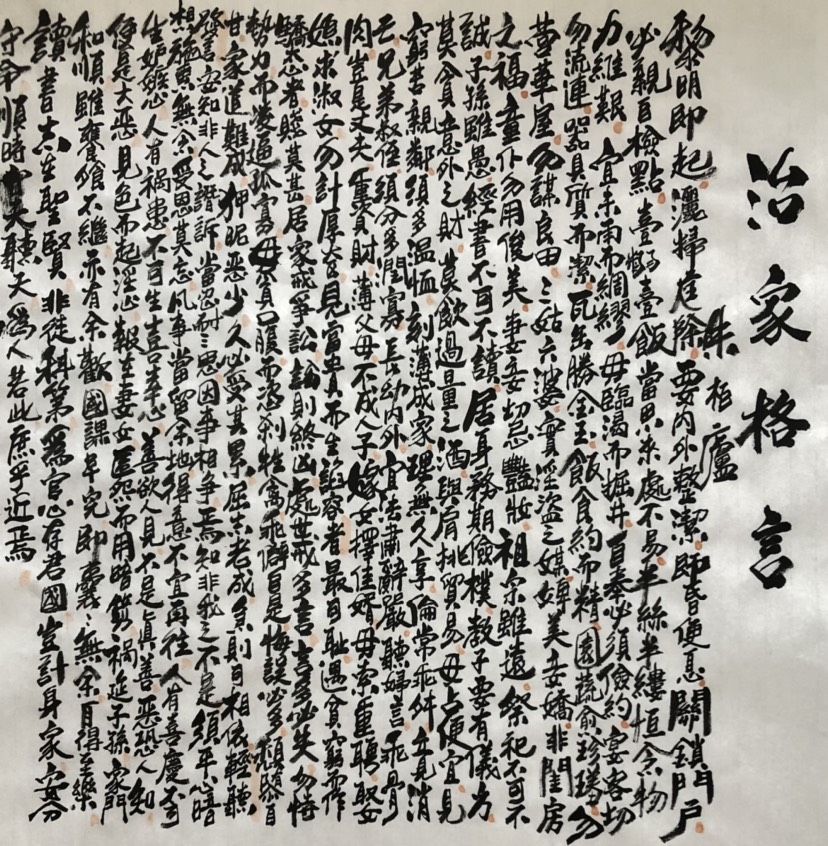 治家格言
朱柏廬
黎明即起灑掃庭除要内外整潔即昏便息關鎖門戶
必親自檢點壹粥壹飯當思來處不易半絲半縷恒念物
力維艱宜未雨而綢繆毋臨渴而掘井自奉必須儉約宴客切
勿流連器具質而潔瓦缶勝金玉飯食約而精園蔬愈珍饈勿
營華屋勿謀良田三姑六婆實淫盜之媒婢美妾嬌非閨房
之福童仆勿用俊美妻妾切忌艷妝祖宗雖遠祭祀不可不
誠子孫雖愚經書不可不讀居身務期儉樸教子要有儀方
莫貪意外之財莫飲過量之酒與肩挑貿易毋占便宜見
窮苦親鄰須多溫恤刻薄成家理無久享倫常乖舛立見消
亡兄弟叔侄須分多潤寡長幼内外宜法肅辭嚴聽婦言乖骨
肉豈是丈夫重資財薄父母不成人子嫁女擇佳婿毋索重聘娶
媳求淑女勿計厚奩見富貴而生諂容者最可恥遇貧窮而作
驕態者賤莫甚居家戒爭訟訟則終凶處世戒多言言多必失勿恃
勢力而淩逼孤寡毋貪口腹而恣殺牲禽乖僻自是悔誤必多頹隳自
甘家道難成狎昵惡少久必受其累屈志老成急則可相依輕聽
發言安知非人之譖訴當忍耐三思因事相爭焉知非我之不是須平心暗
想施惠無念受恩莫忘凡事當留余地得意不宜再往人有喜慶不可
生妒嫉心人有禍患不可生喜幸心善欲人見不是真善惡恐人知
便是大惡見色而起淫心報在妻女匿怨而用暗箭禍延子孫家門
和順雖饔飧不繼亦有余歡國課早完即囊橐無余自得至樂
讀書志在聖賢非徒科第為官心存君國豈計身家安分
守命順時聽天為人若此庶乎近焉